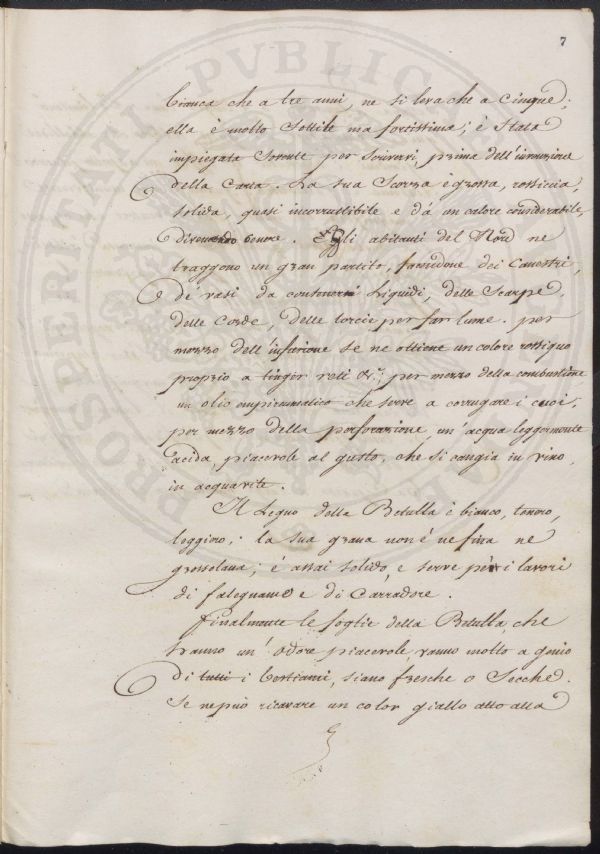 7
bianca che a tre anni, ne si leva che a Cinque:
ella è molto Sottile ma fortissima; è Stata
impiegata Sovente per Scriverci, prima dell'invenzione
della Carta. La sua Scorza è grossa, rossiccia,
solida, quasi incorruttibile e dà un calore considerabile,
divenendo Cenere. Gli abitanti del Nord ne
traggono un gran partito, facendone dei Canestri,
de' vasi da contenervi Liquidi, delle Scarpe,
delle Corde, delle torcie per far lume. per
mezzo dell'infusione se ne ottiene un colore rossiguo
proprio a tinger reti &c.; per mezzo della combustione
un olio empireumatico che serve a corrugare i cuoi,
per mezzo della perforazione un'acqua leggermente
acida, piacevole al gusto, che si cangia in vino,
in acquavite.
Il Legno della Betulla è bianco, tenero,
leggiero; la sua grana non è ne fina ne
grossolana; è assai solido, e serve per i lavori
di falegname e di Carradore.
finalmente le foglie della Betulla, che
hanno un' odore piacevole, vanno molto a genio
di tutti i bestiami, siano fresche o Secche.
Se ne può ricavare un color giallo atto alla
PROSPERITATI PVBLICAE